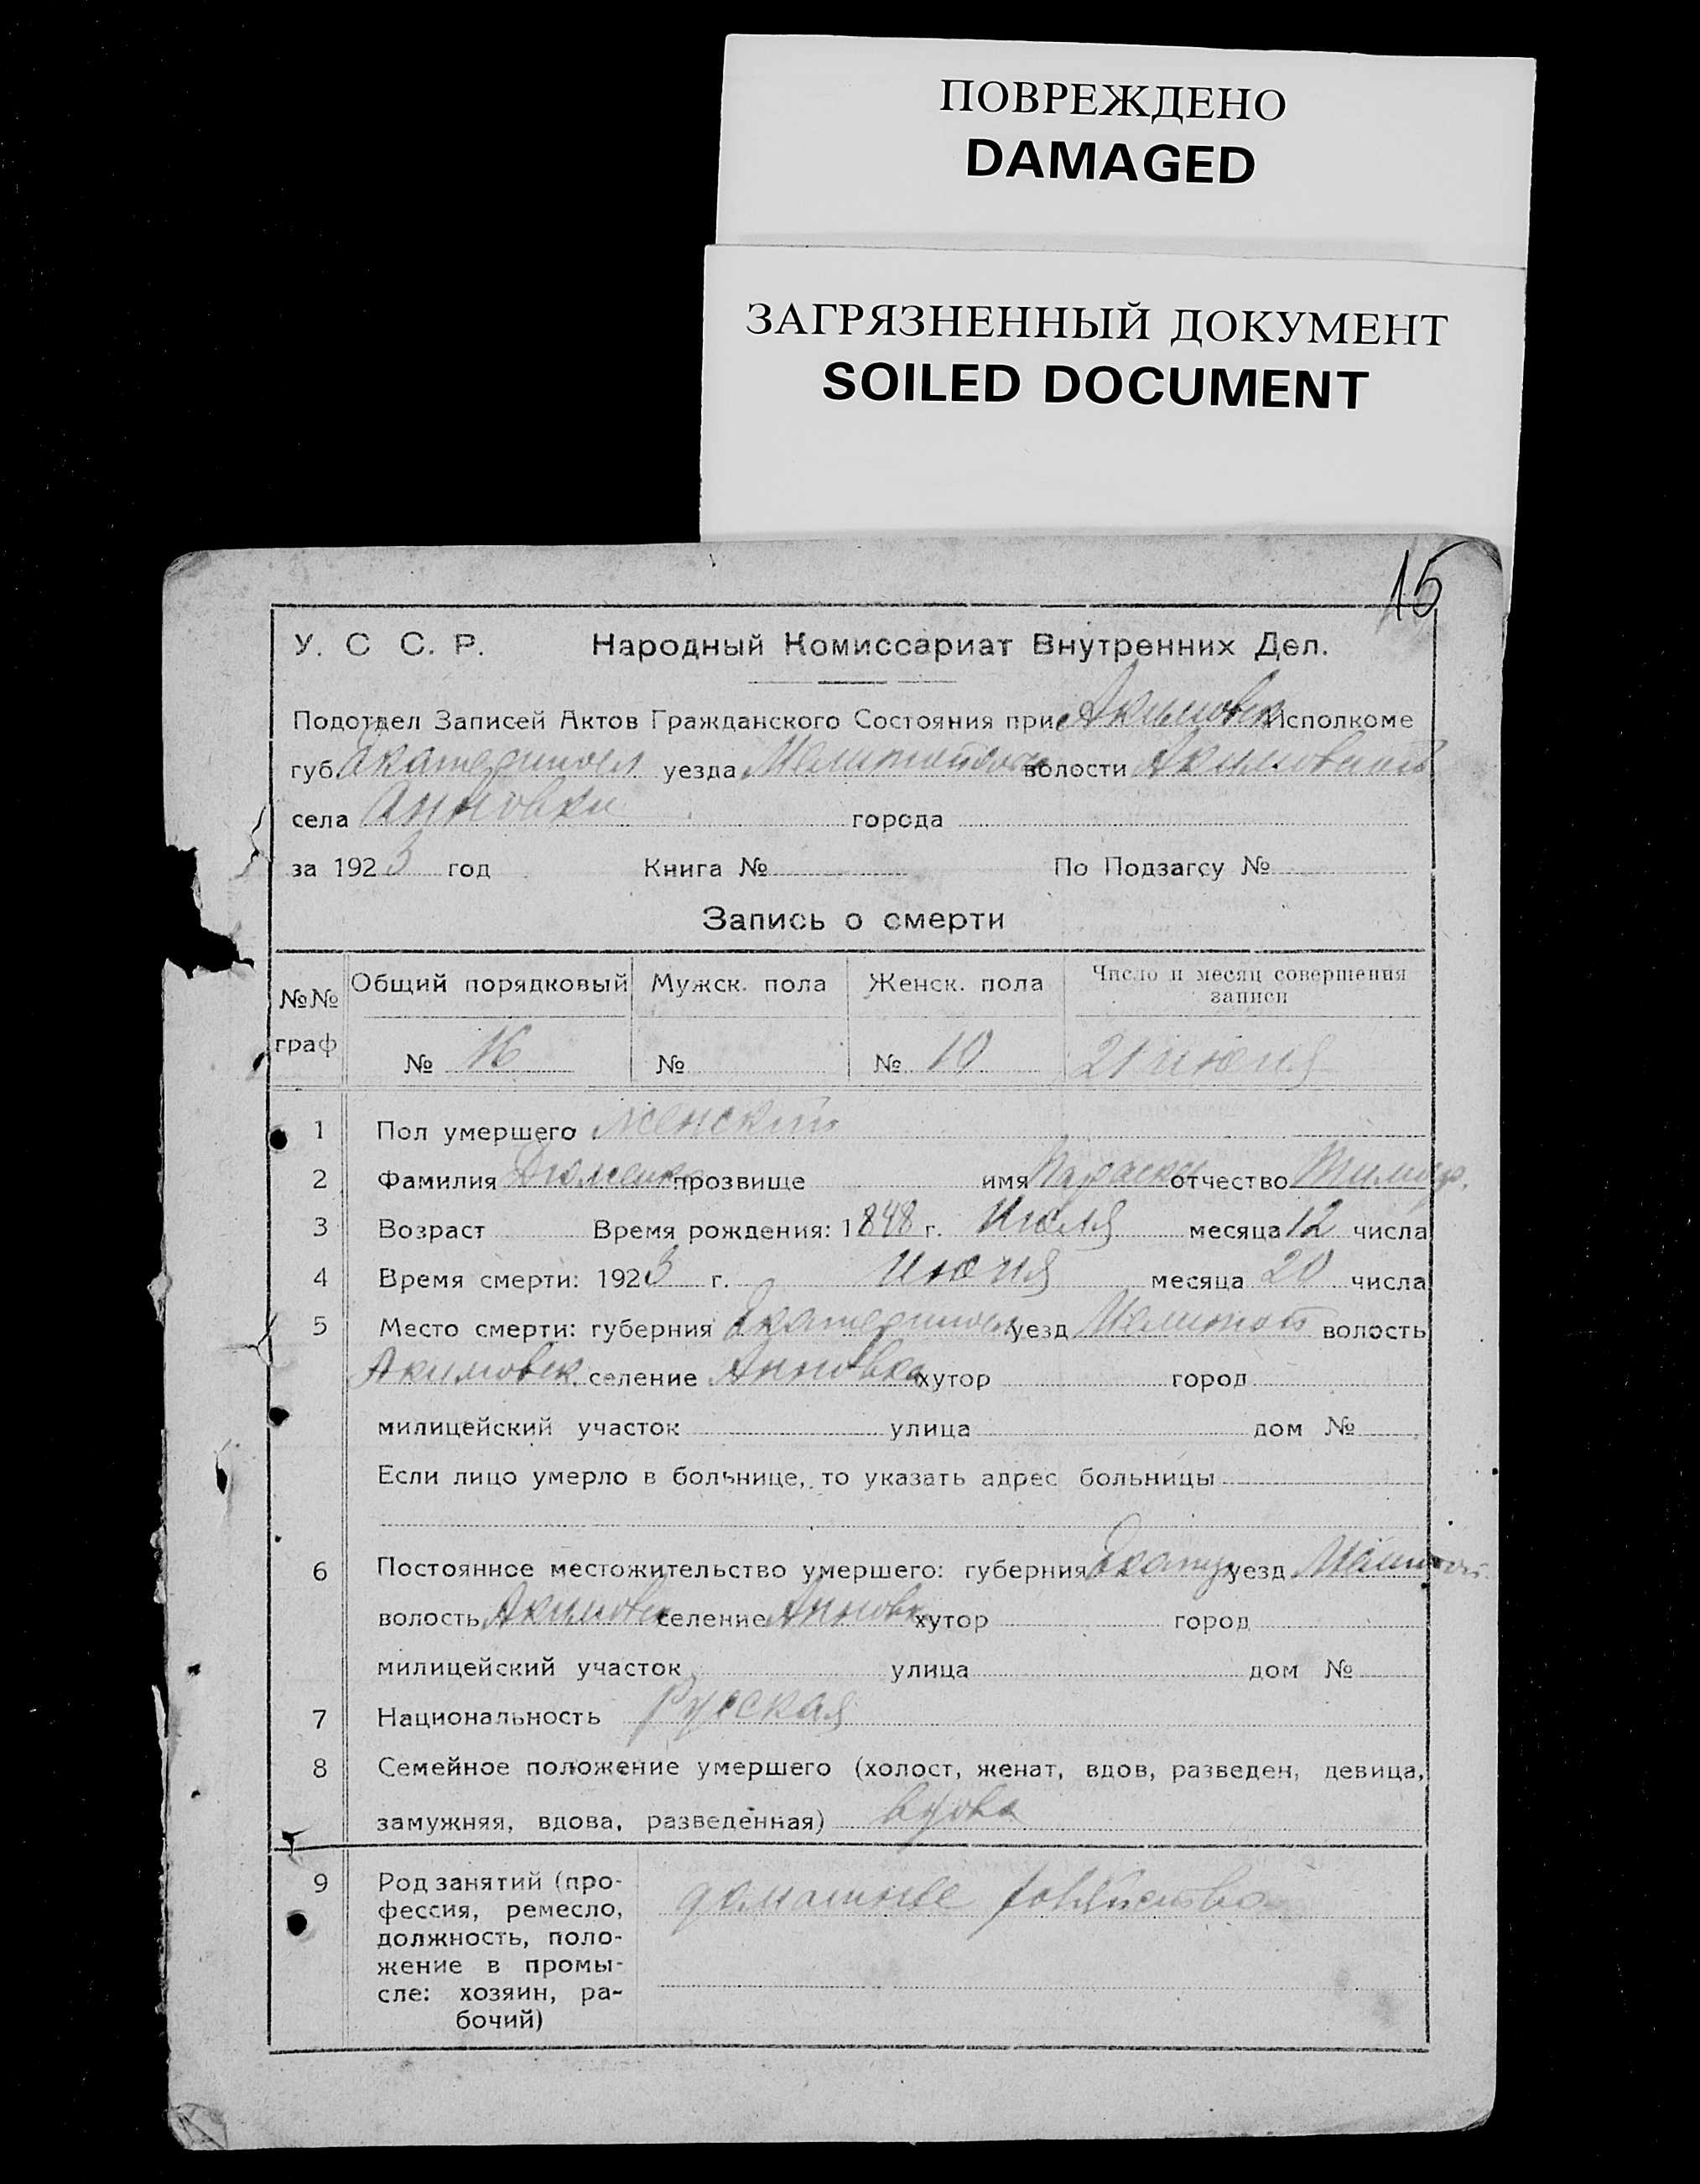 ПОВРЕЖДЕНО
DAMAGED
ЗАГРЯЗНЕННЫЙ ДОКУМЕНТ
SOILED DOCUMENT
15
У. С С. Р. Народный Комиссариат Внутренних Дел.
Подотдел Записей Актов Гражданского Состояния при Акимовск Исполкоме
губ. Екатериносл уезда волости Акимовской
села Анновки города
за 1923 год Книга № По Подзагсу №
Запись о смерти
№№ граф Общий порядковый Мужск. пола Женск. пола Число и месяц совершения записи
№ 16 № № 10 21 июня
1 Пол умершего женский
2 Фамилия прозвище имя Параска отчество
3 Возраст Время рождения: 1848 г. Июля месяца 12 числа
4 Время смерти: 1923 г. июня месяца 20 числа
5 Место смерти: губерния Екатериносл уезд Мелитоп волость
Акимовск. селение Анновка хутор город
милицейский участок улица дом №
Если лицо умерло в больнице, то указать адрес больницы
6 Постоянное местожительство умершего: губерния уезд
волость Акимовск селение Анновка хутор город
милицейский участок улица дом №
7 Национальность Русская
8 Семейное положение умершего (холост, женат, вдов, разведен, девица,
замужняя, вдова, разведенная) вдова
9 Род занятий (про-
фессия, ремесло,
должность, поло-
жение в промы-
сле: хозяин, ра-
бочий)
домашнее хозяйство